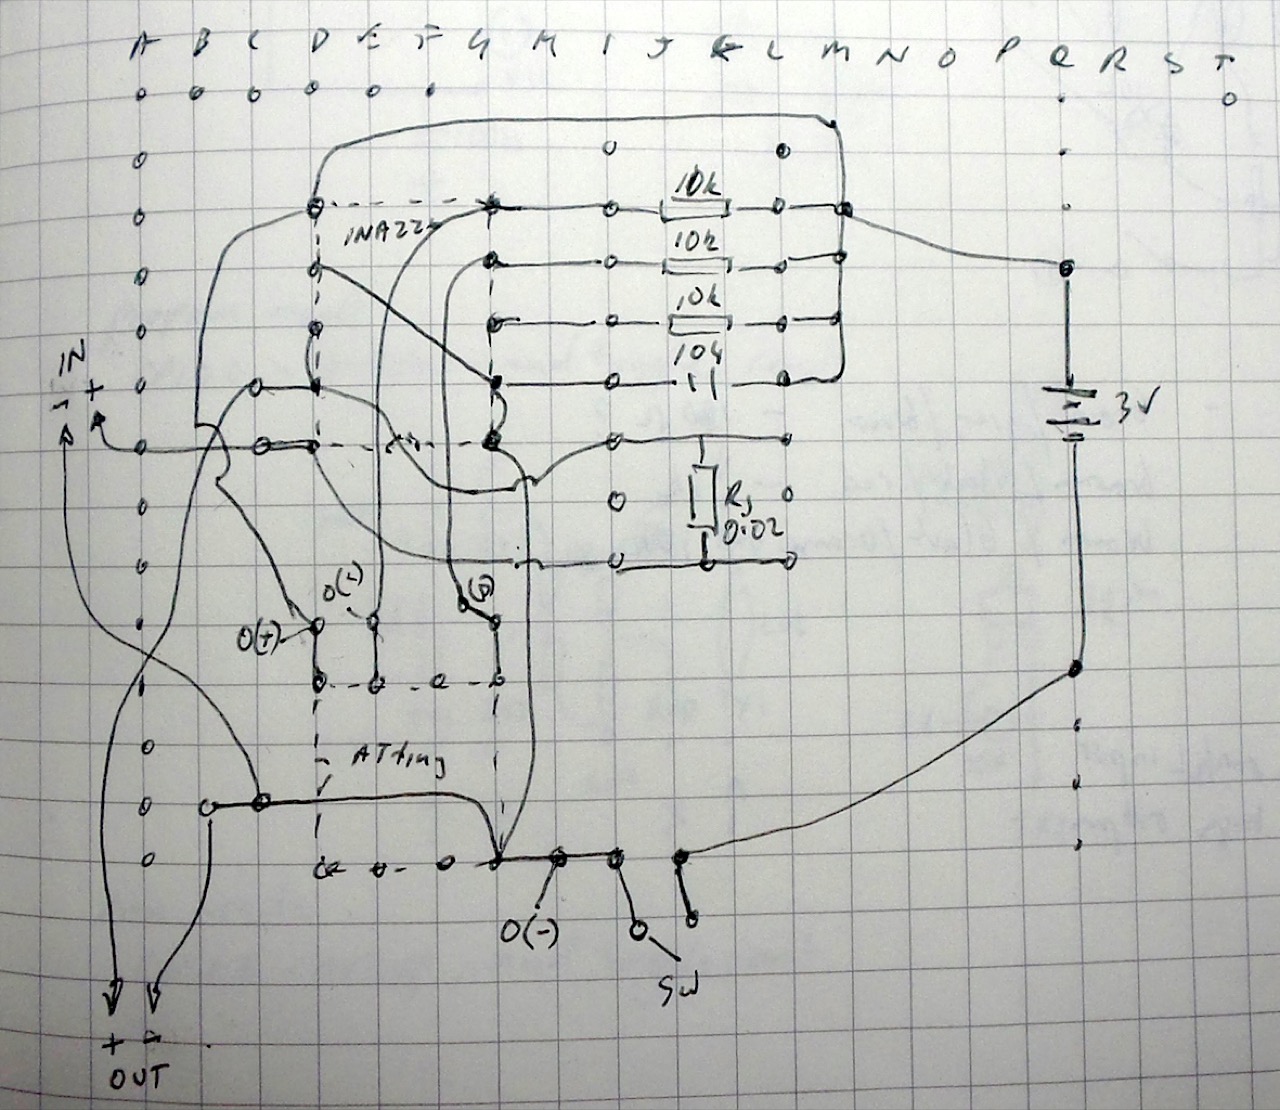 A B C D E F G H I J K L M N O P Q R S T
10k
INA22
10k
10k
IN
104
- +
3V
Rs
0.02
O(-)
O(+)
ATtiny
O(-)
SW
+ -
OUT